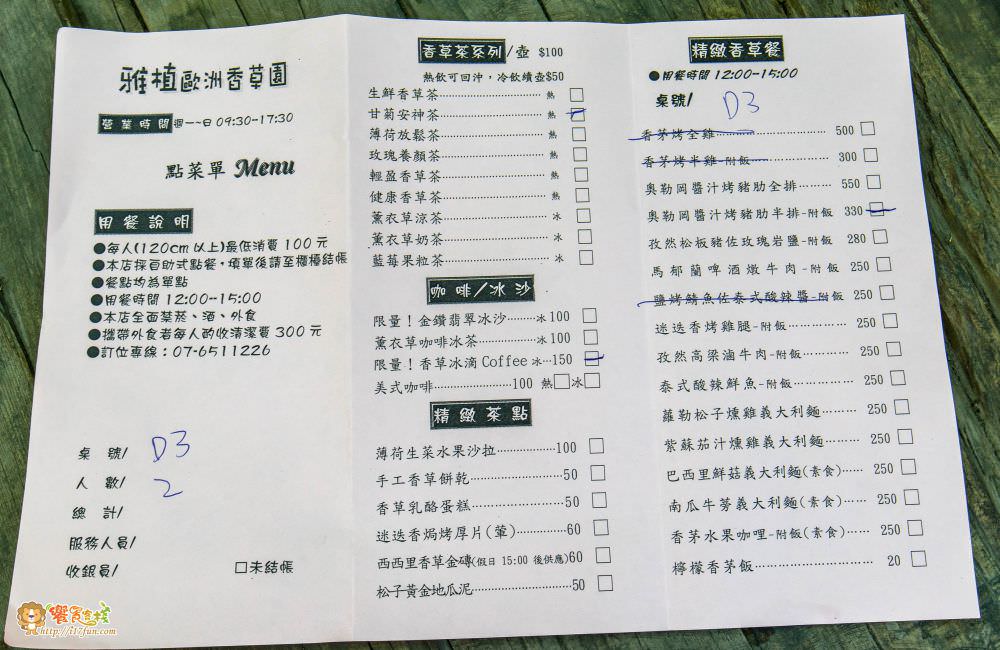 雅植歐洲香草園
營業時間 週一~日 09:30-17:30
點菜單 Menu
用餐說明
●每人(120cm 以上)最低消費 100 元
●本店採自助式點餐，填單後請至櫃檯結帳
●餐點均為單點
●用餐時間 12:00--15:00
●本店全面禁菸、酒、外食
●攜帶外食者每人酌收清潔費 300 元
●訂位專線：07-6511226
桌 號/ D3
人 數/ 2
總 計/
服務人員/
收銀員/ □未結帳
饗食客棧
http://i17fun.com/
香草茶系列/壺 $100
熱飲可回沖，冷飲續壺$50
生鮮香草茶 熱 □
甘菊安神茶 熱 □
薄荷放鬆茶 熱 □
玫瑰養顏茶 熱 □
輕盈香草茶 熱 □
健康香草茶 熱 □
薰衣草涼茶 冰 □
薰衣草奶茶 冰 □
藍莓果粒茶 冰 □
咖啡/冰沙
限量！金鑽翡翠冰沙 冰 100 □
薰衣草咖啡冰茶 冰 100 □
限量！香草冰滴 Coffee 冰 150 □
美式咖啡 100 熱□冰□
精緻茶點
薄荷生菜水果沙拉 100 □
手工香草餅乾 50 □
香草乳酪蛋糕 50 □
迷迭香焗烤厚片(葷) 60 □
西西里香草金磚(假日 15:00 後供應)60 □
松子黃金地瓜泥 50 □
精緻香草餐
●用餐時間 12:00-15:00
桌號/ D3
香茅烤全雞 500 □
香茅烤半雞-附飯 300 □
奧勒岡醬汁烤豬肋全排 550 □
奧勒岡醬汁烤豬肋半排-附飯 330 □
孜然松板豬佐玫瑰岩鹽-附飯 280 □
馬郁蘭啤酒燉牛肉-附飯 250 □
鹽烤鯖魚佐泰式酸辣醬-附飯 250 □
迷迭香烤雞腿-附飯 250 □
孜然高梁滷牛肉-附飯 250 □
泰式酸辣鮮魚-附飯 250 □
蘿勒松子燻雞義大利麵 250 □
紫蘇茄汁燻雞義大利麵 250 □
巴西里鮮菇義大利麵(素食) 250 □
南瓜牛蒡義大利麵(素食) 250 □
香茅水果咖哩-附飯(素食) 250 □
檸檬香茅飯 20 □